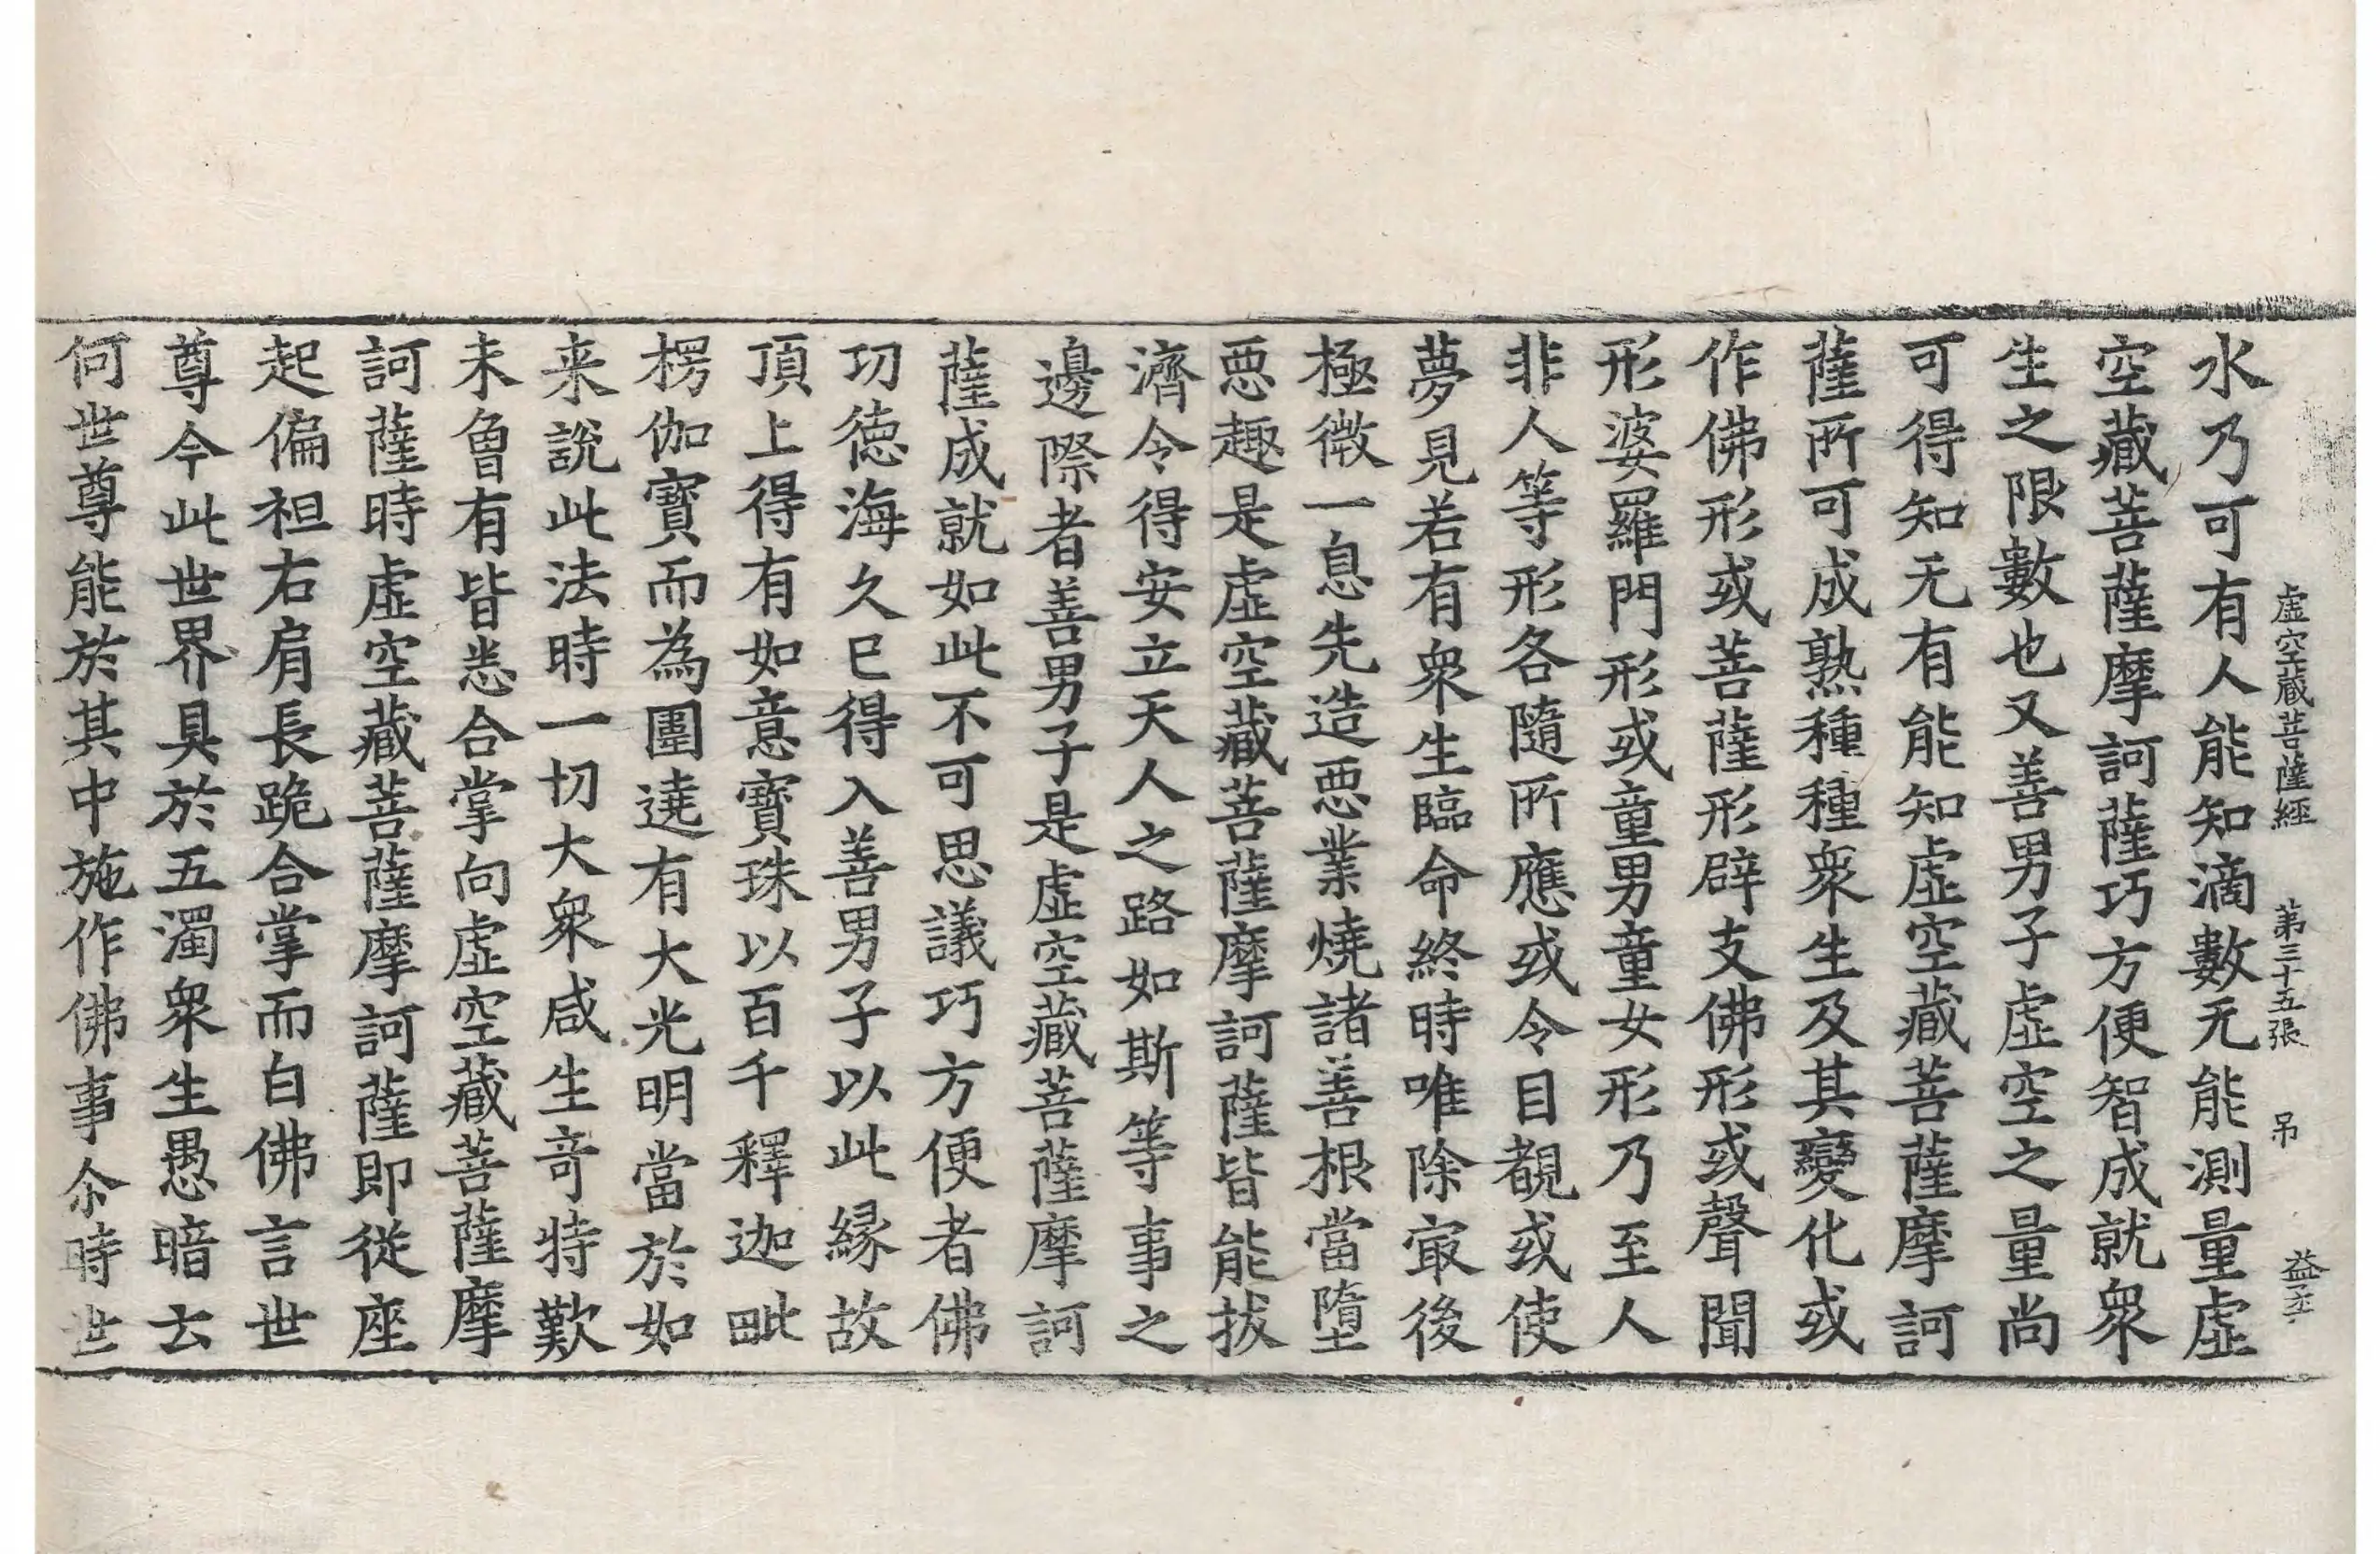 虛空藏菩薩經　第三十五張　吊　益丕
水乃可有人能知滴數无能測量虛
空藏菩薩摩訶薩巧方便智成就衆
生之限數也又善男子虛空之量尚
可得知无有能知虛空藏菩薩摩訶
薩所可成熟種種衆生及其變化或
作佛形或菩薩形辟支佛形或聲聞
形婆羅門形或童男童女形乃至人
非人等形各隨所應或令目覩或使
夢見若有衆生臨命終時唯除冣後
極微一息先造惡業燒諸善根當墮
惡趣是虛空藏菩薩摩訶薩皆能拔
濟令得安立天人之路如斯等事之
邊際者善男子是虛空藏菩薩摩訶
薩成就如此不可思議巧方便者佛
功德海久已得入善男子以此緣故
頂上得有如意寶珠以百千釋迦毗
楞伽寶而為圍遶有大光明當於如
来說此法時一切大衆咸生竒特歎
未曾有皆悉合掌向虛空藏菩薩摩
訶薩時虛空藏菩薩摩訶薩即從座
起偏袒右肩長跪合掌而白佛言世
尊今此世界具於五濁衆生愚暗云
何世尊能於其中施作佛事尒時世